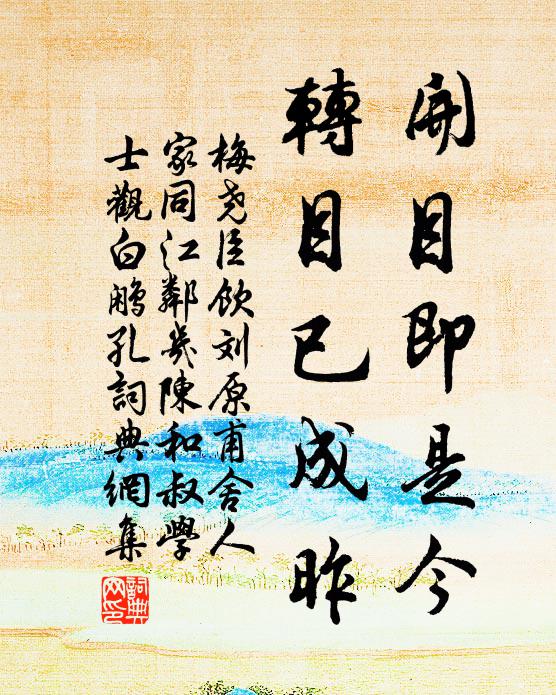 開目即是今
轉目已成昨
梅堯臣飲刘原甫舍人
家同江鄰幾陳和叔學
士觀白鷴孔詞典網集
詞典